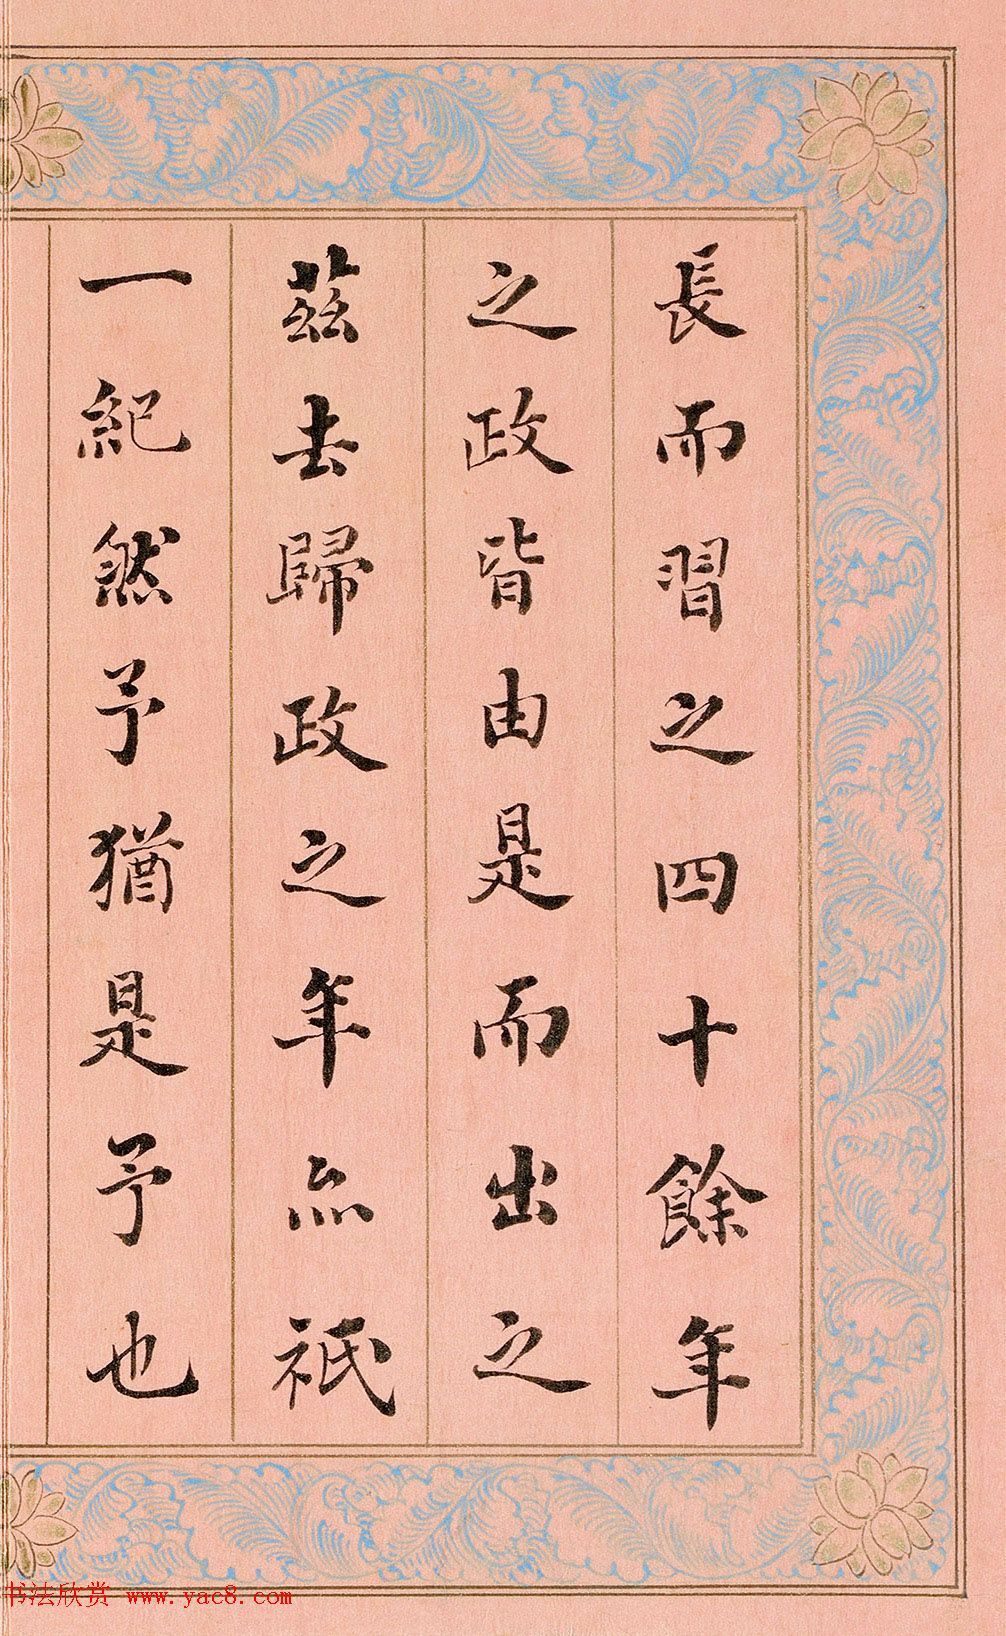 長而習之四十餘年
之政皆由是而出之
茲去歸政之年亦祇
一紀然予猶是予也
书法欣赏 www.yac8.com